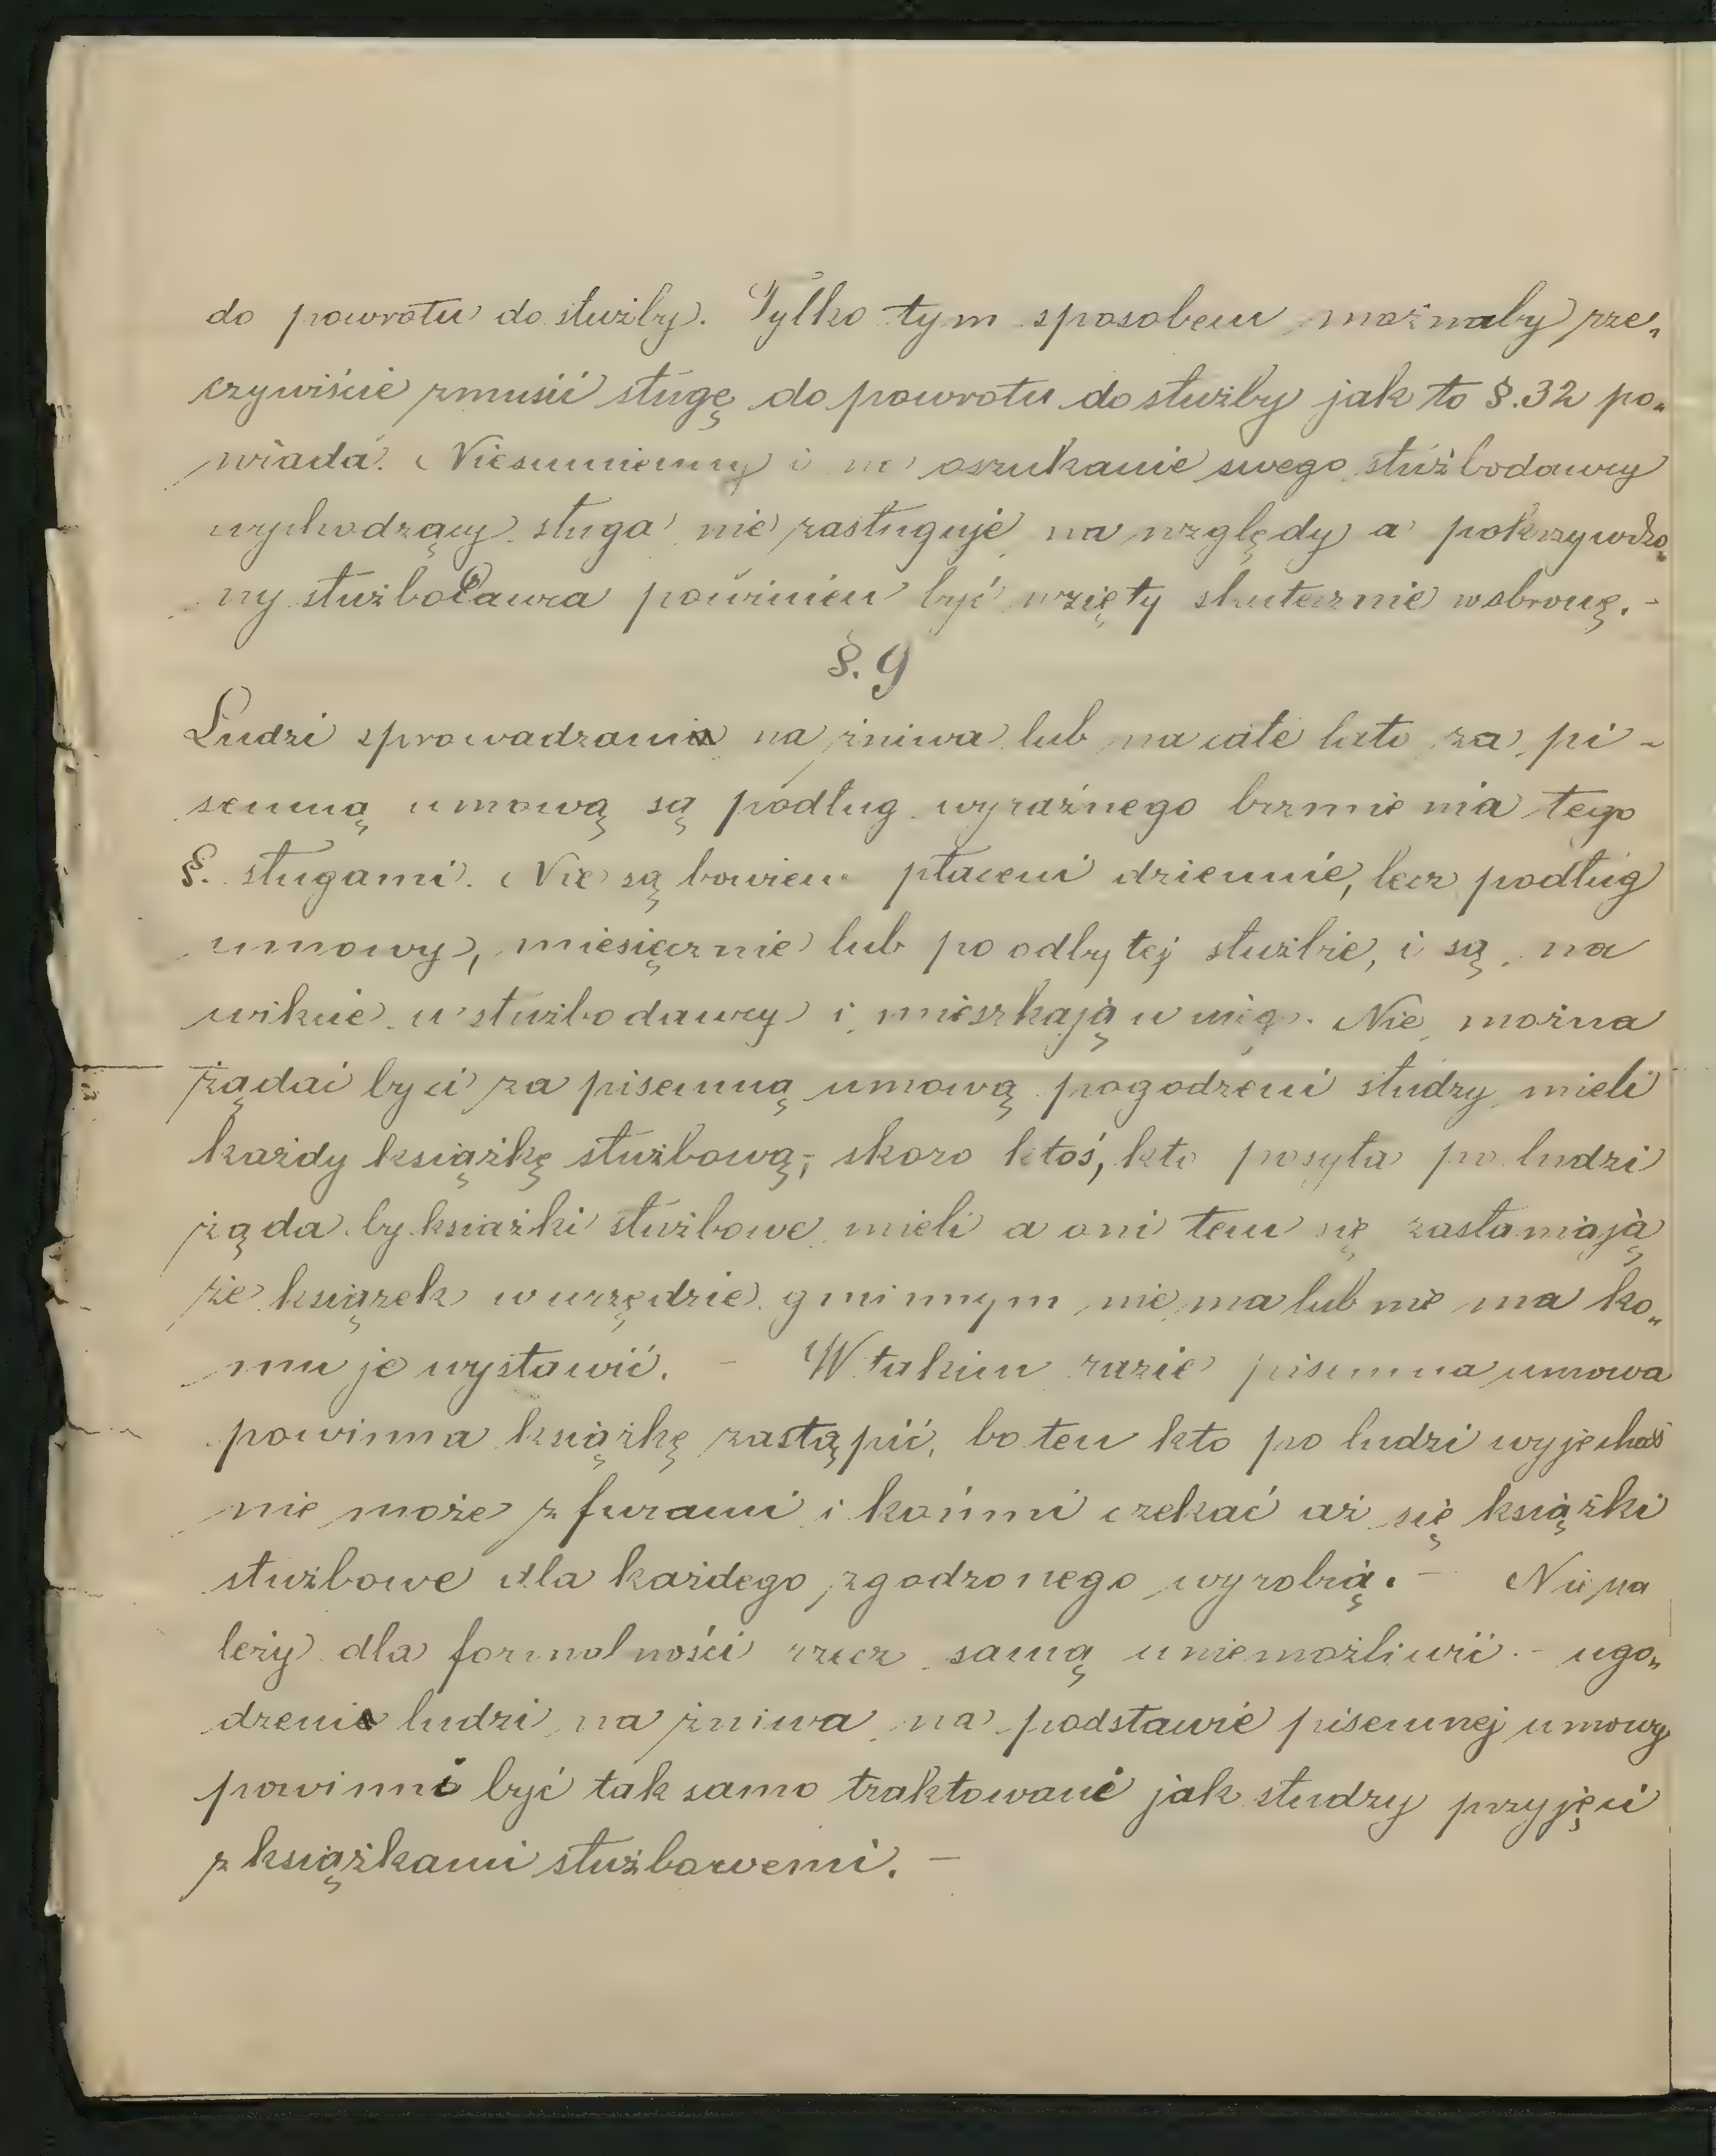 do powrotu do służby. Tylko tym sposobem możnaby rze„
czywiście zmusić sługę do powrotu do służby jak to §. 32 po„
wiada. Niesumienny i na oszukanie swego służbodawcy
wychodzący sługa nie zasługuje na względy a pokrzywdzo„
ny służbodawca powinien być wzięty skutecznie w obronę. -
§. 9
Ludzi sprowadzania na żniwa lub na całe lato za pi -
semną umową są podług wyraźnego brzmienia tego
§. sługami. Nie są bowiem płaceni dziennie, lecz podług
umowy, miesięcznie lub po odbytej służbie, i są na
wikcie u służbodawcy i mieszkają u
Nie można
żądać by ci za pisemną umową pogodzeni słudzy mieli
każdy książkę służbową; skoro ktoś, kto posyła po ludzi
żąda by ksiażki służbowe mieli a oni tem się zasłaniają
że książek w urzędzie gminnym nie ma lub nie ma ko„
mu je wystawić. - W takim razie pisemna umowa
powinna książkę zastąpić, bo ten kto po ludzi wyjechał
nie może z furami i końmi czekać aż się książki
służbowe dla każdego zgodzonego wyrobią. - Nie na
leży dla formalności rzecz samą uniemożliwić. - ugo„
dzenie ludzi na żniwa na podstawie pisemnej umowy
powinni być tak samo traktowani jak słudzy przyjęci
z książkami służbowemi. -